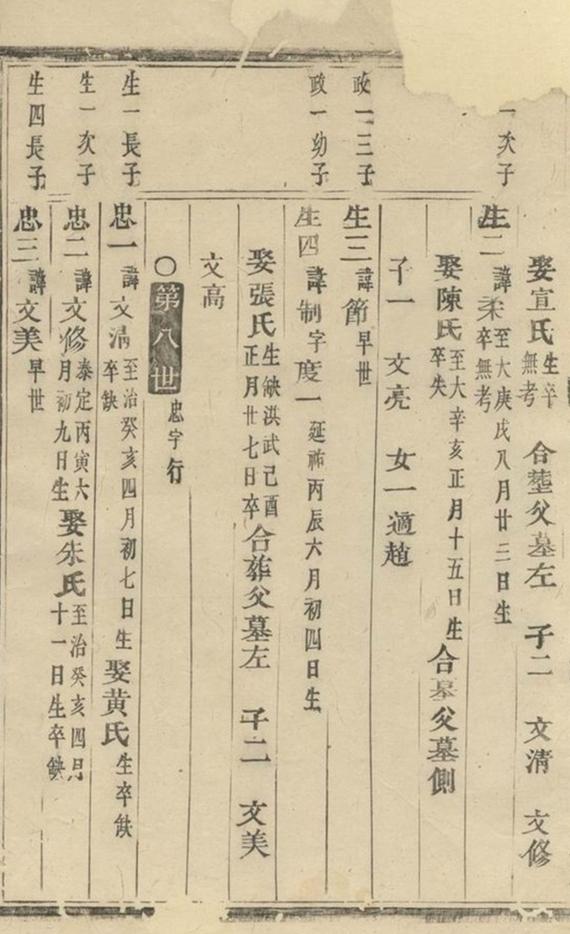 娶宣氏生卒無考 合塟父墓左 子二 文清 文修
一次子
生二 諱柔至大庚戌八月廿三日生卒無考
娶陳氏至大辛亥正月十五日生卒失 合墓父墓側
子一 文亮 女一適趙
政一三子
生三 諱節早世
政一幼子
生四 諱制字度一 延祐丙辰六月初四日生
娶張氏生缺洪武己酉正月廿七日卒 合葬父墓左 子二 文美
文高
○第八世 忠字行
生一長子
忠一 諱文清至治癸亥四月初七日生卒缺 娶黄氏生卒缺
生一次子
忠二 諱文修泰定丙寅六月初九日生 娶朱氏至治癸亥四月十一日生卒缺
生四長子
忠三 諱文美早世